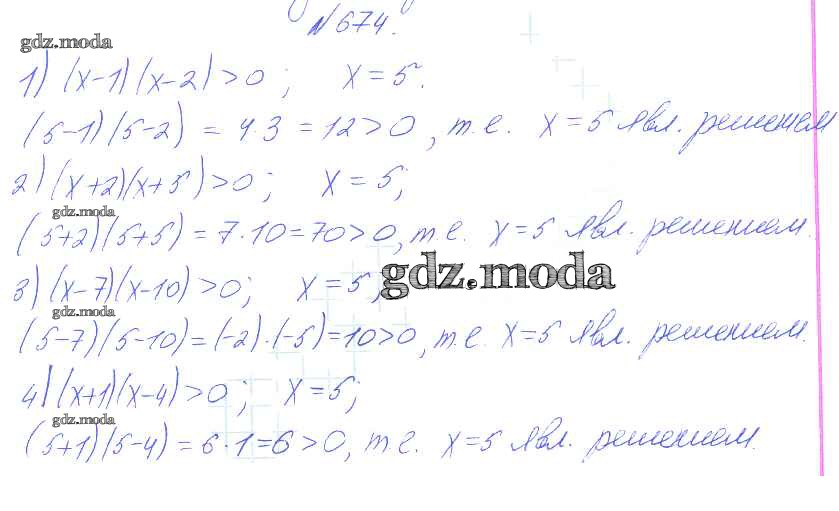 №674.
gdz.moda
1) (x-1)(x-2)>0; x=5.
(5-1)(5-2) = 4·3 = 12>0, т.е. x=5 явл. решением
2) (x+2)(x+5)>0; x=5;
gdz.moda
(5+2)(5+5) = 7·10=70>0, т.е. x=5 явл. решением.
gdz.moda
3) (x-7)(x-10)>0; x=5;
gdz.moda
(5-7)(5-10)=(-2)·(-5)=10>0, т.е. x=5 явл. решением.
4) (x+1)(x-4)>0; x=5;
gdz.moda
(5+1)(5-4)=6·1=6>0, т.е. x=5 явл. решением.